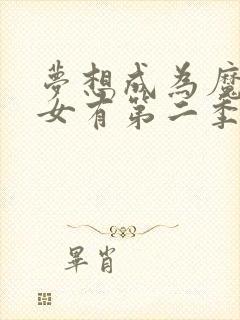 夢想成為魔
女有第二季
畢肖